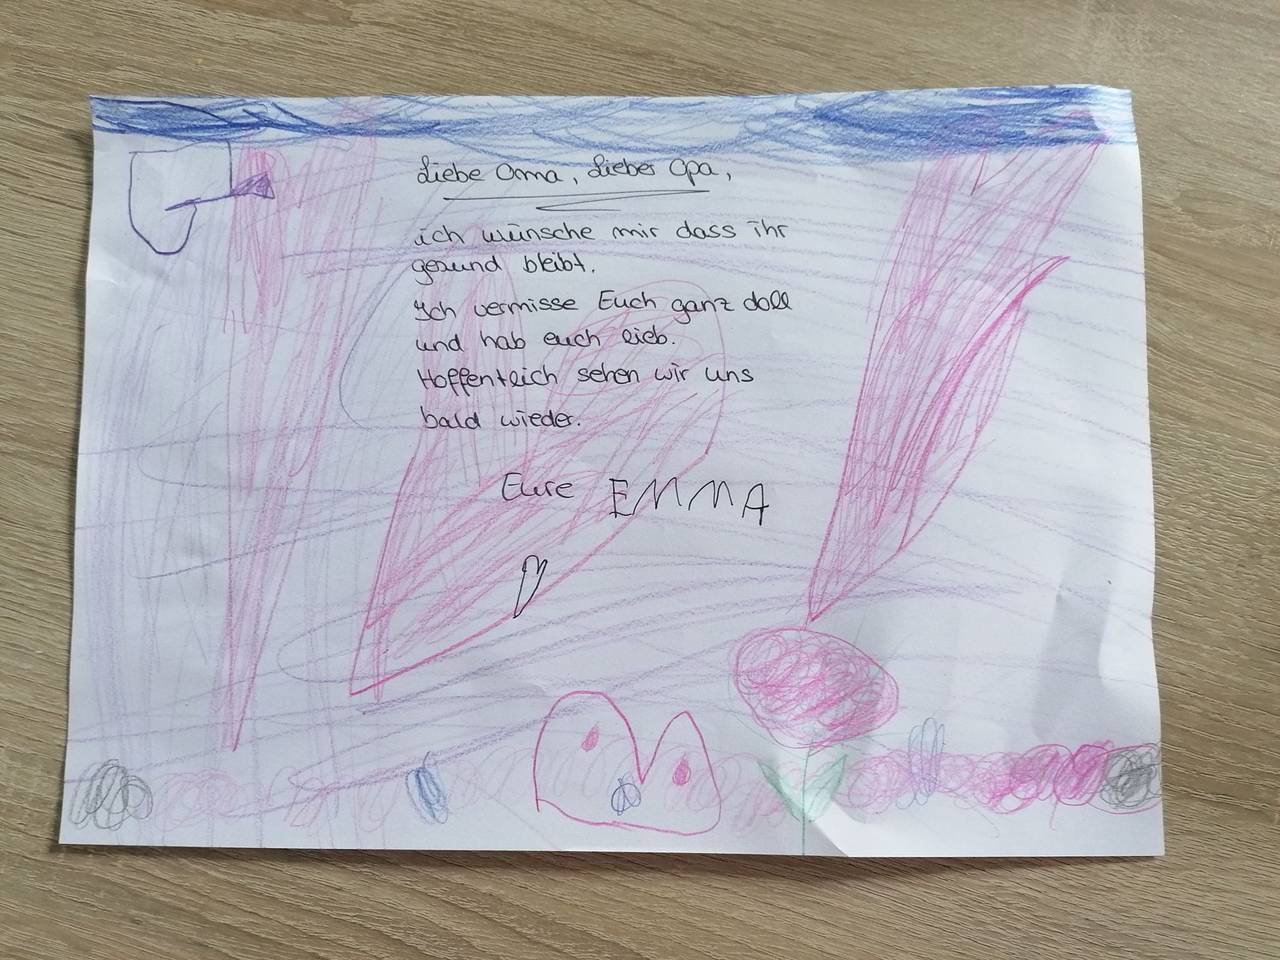 Liebe Oma, Lieber Opa,
ich wünsche mir dass ihr
gesund bleibt.
Ich vermisse Euch ganz doll
und hab euch lieb.
Hoffentlich sehen wir uns
bald wieder.
Eure EMMA